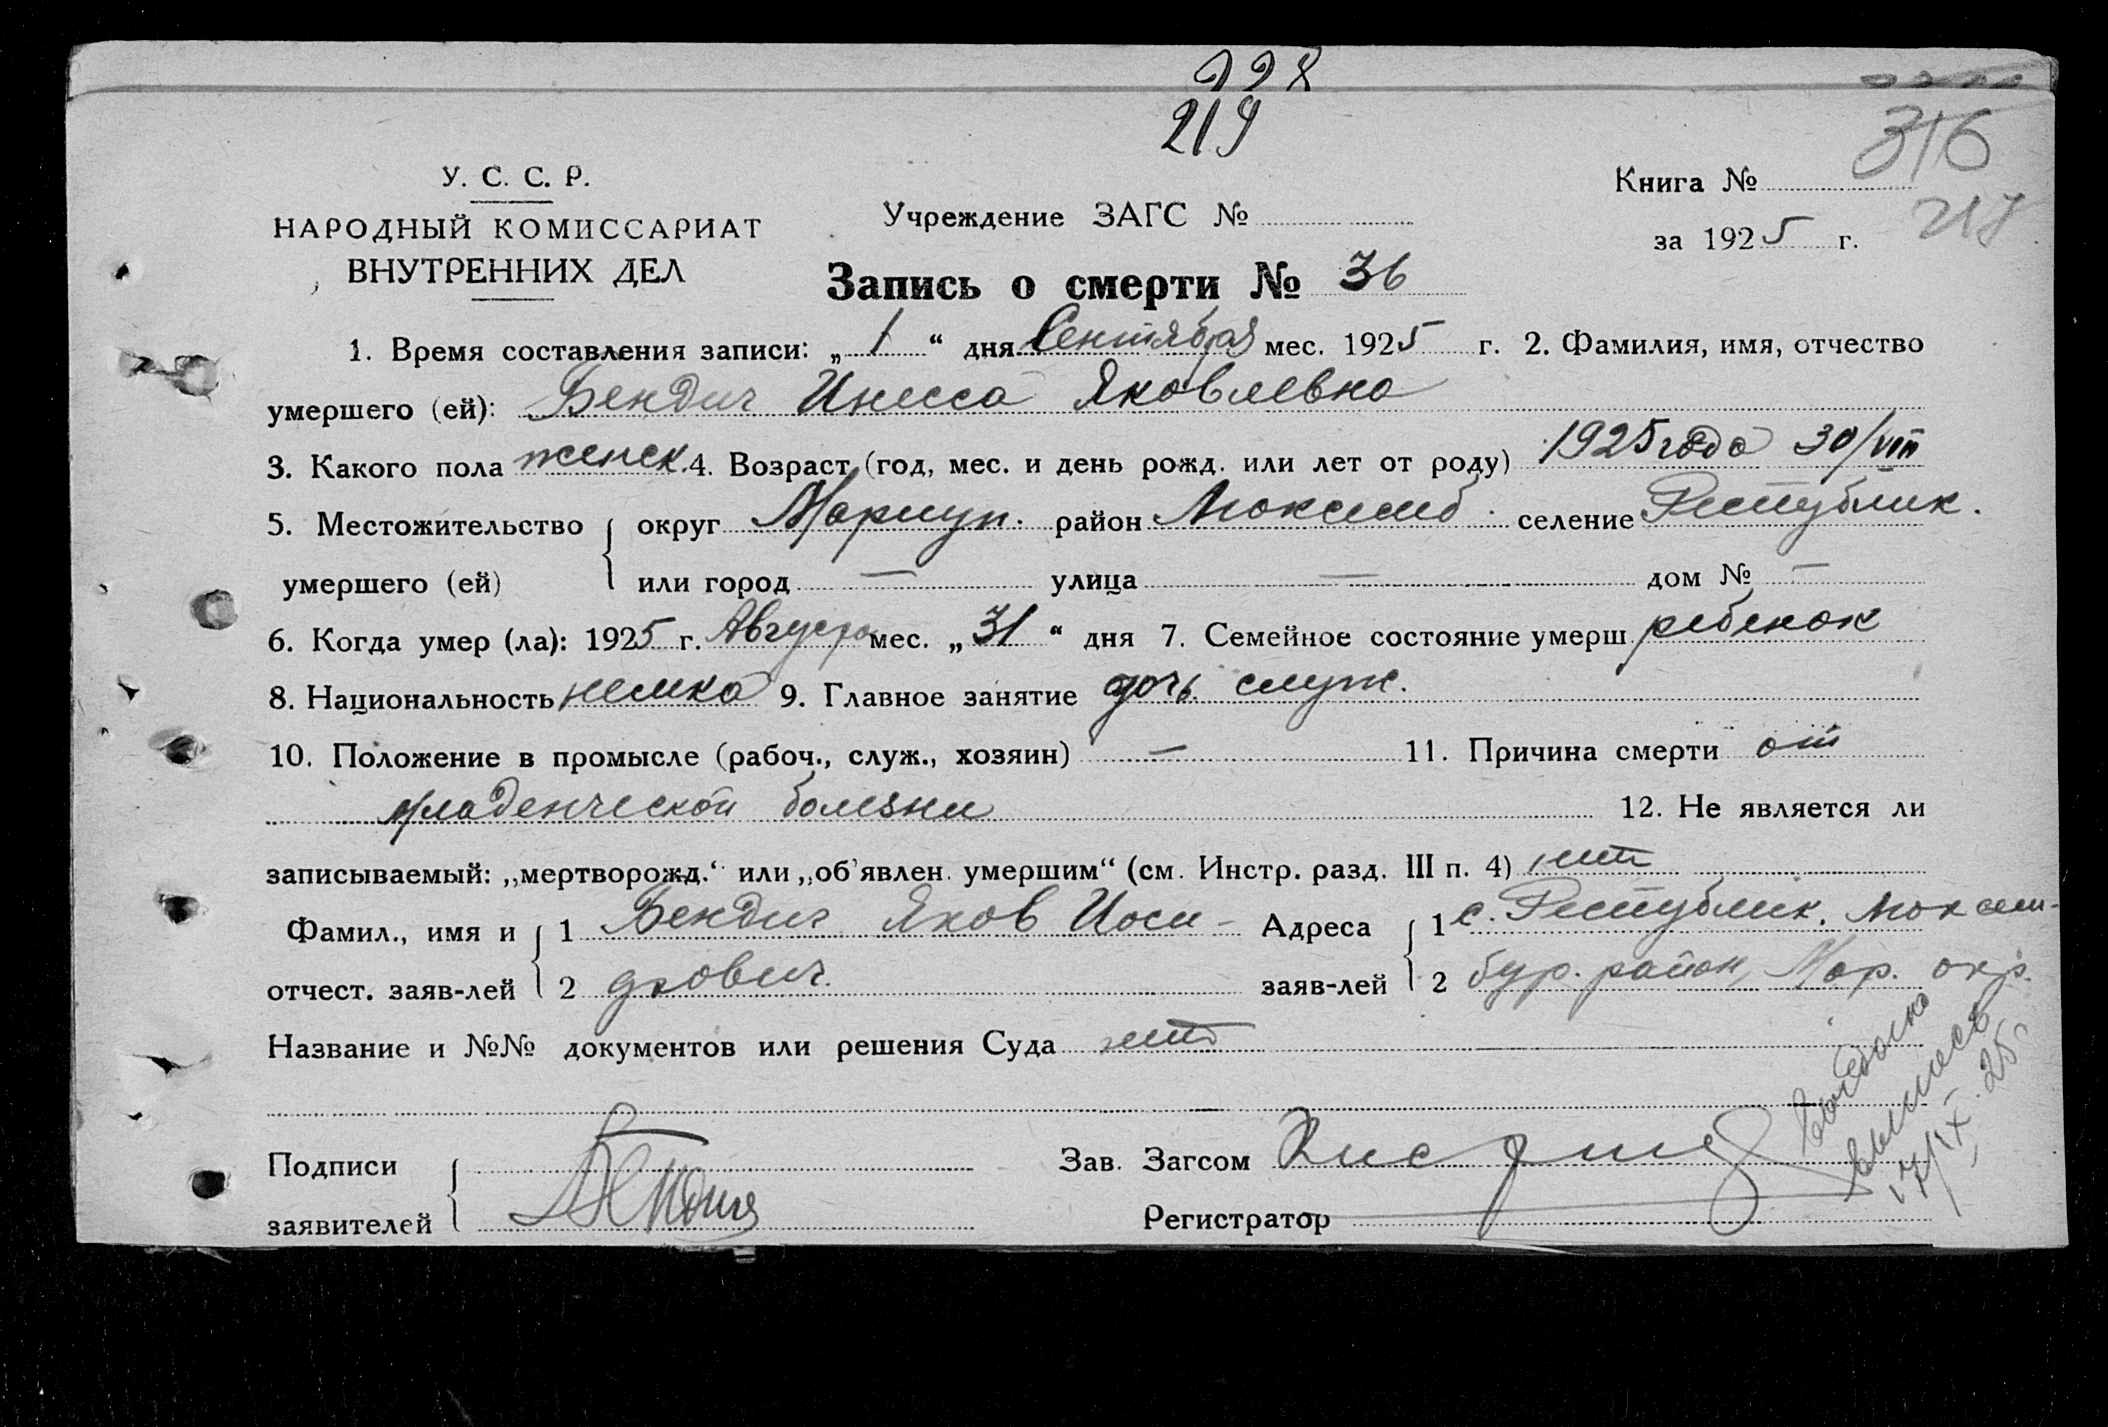 228
219
316
217
У. С. С. Р.
НАРОДНЫЙ КОМИССАРИАТ
ВНУТРЕННИХ ДЕЛ
Учреждение ЗАГС №
Книга №
за 1925 г.
Запись о смерти № 36
1. Время составления записи: „ 1 “ дня Сентября мес. 1925 г. 2. Фамилия, имя, отчество
умершего (ей): Бендич Инесса Яковлевна
3. Какого пола женск. 4. Возраст (год, мес. и день рожд. или лет от роду) 1925 года 30/VIII
5. Местожительство округ Мариуп. район Люксемб. селение Республик.
умершего (ей) или город — улица — дом № —
6. Когда умер (ла): 1925 г. Августа мес. „ 31 “ дня 7. Семейное состояние умерш. ребенок
8. Национальность немка 9. Главное занятие дочь служ.
10. Положение в промысле (рабоч., служ., хозяин) — 11. Причина смерти от
младенческой болезни 12. Не является ли
записываемый: „мертворожд.“ или „об'явлен. умершим“ (см. Инстр. разд. III п. 4) нет
Фамил., имя и 1 Бендич Яков Иоси- Адреса 1 с. Республик. Люксем-
отчест. заяв-лей 2 фович. заяв-лей 2 бур. район, Мар. окр.
Название и №№ документов или решения Суда нет
Подписи Зав. Загсом
заявителей Бендич Регистратор
Выдана
выпись
17/IX.25